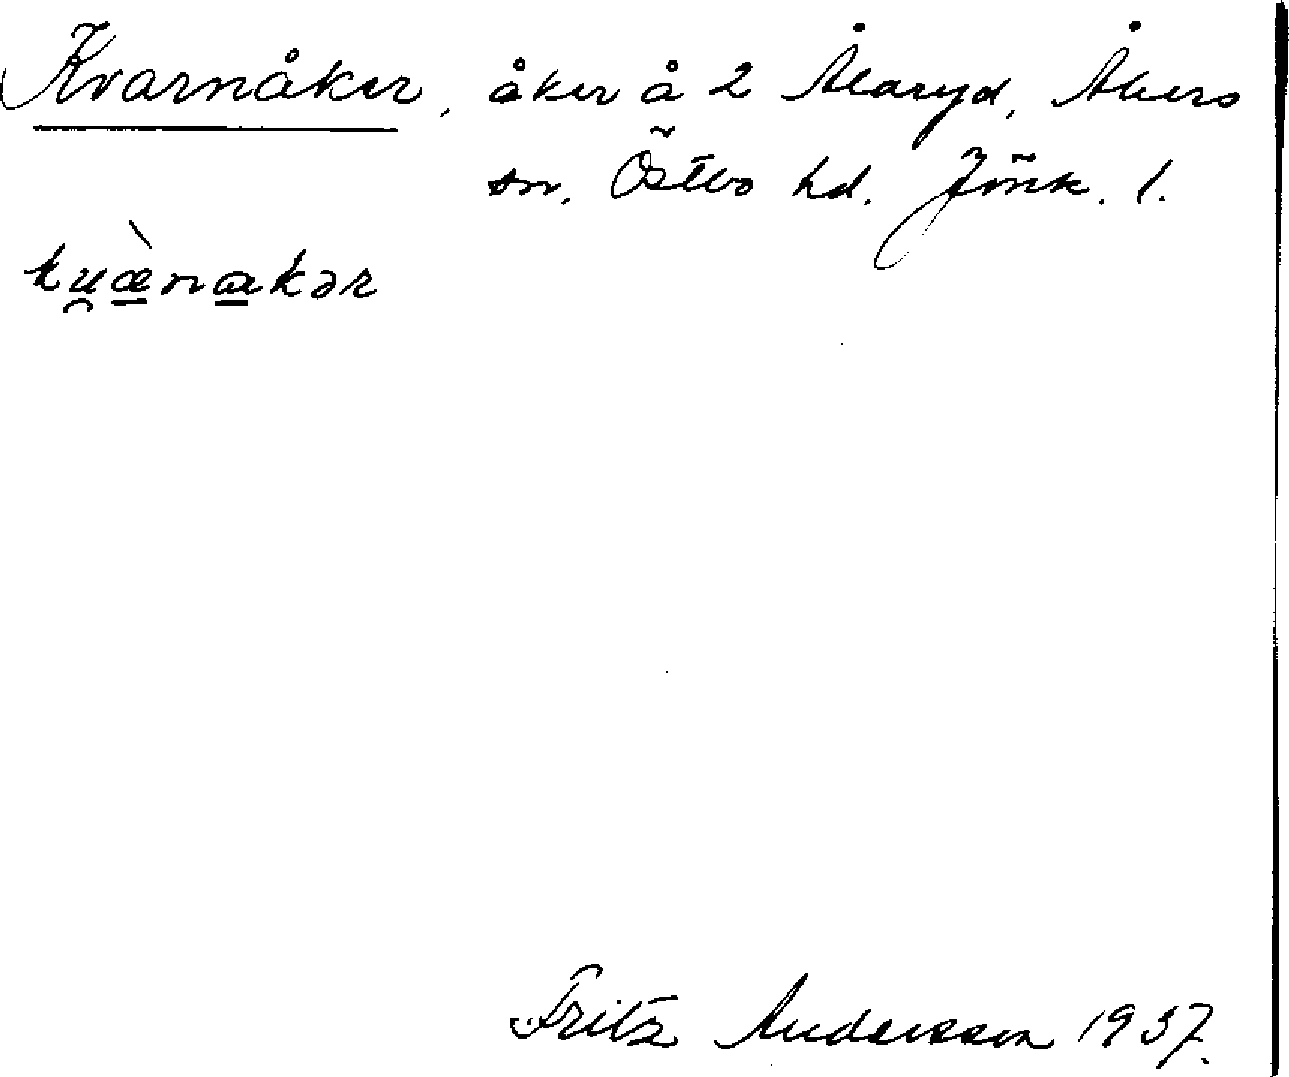 Kvarnåker, åker å 2 Ålaryd, Åkers
sn. Östbo hd. Jönk. l.
ku̯æ̀nakər
Fritz Andersson 1937.